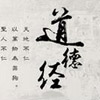 道德经
天地不仁
以萬物為芻狗
聖人不仁